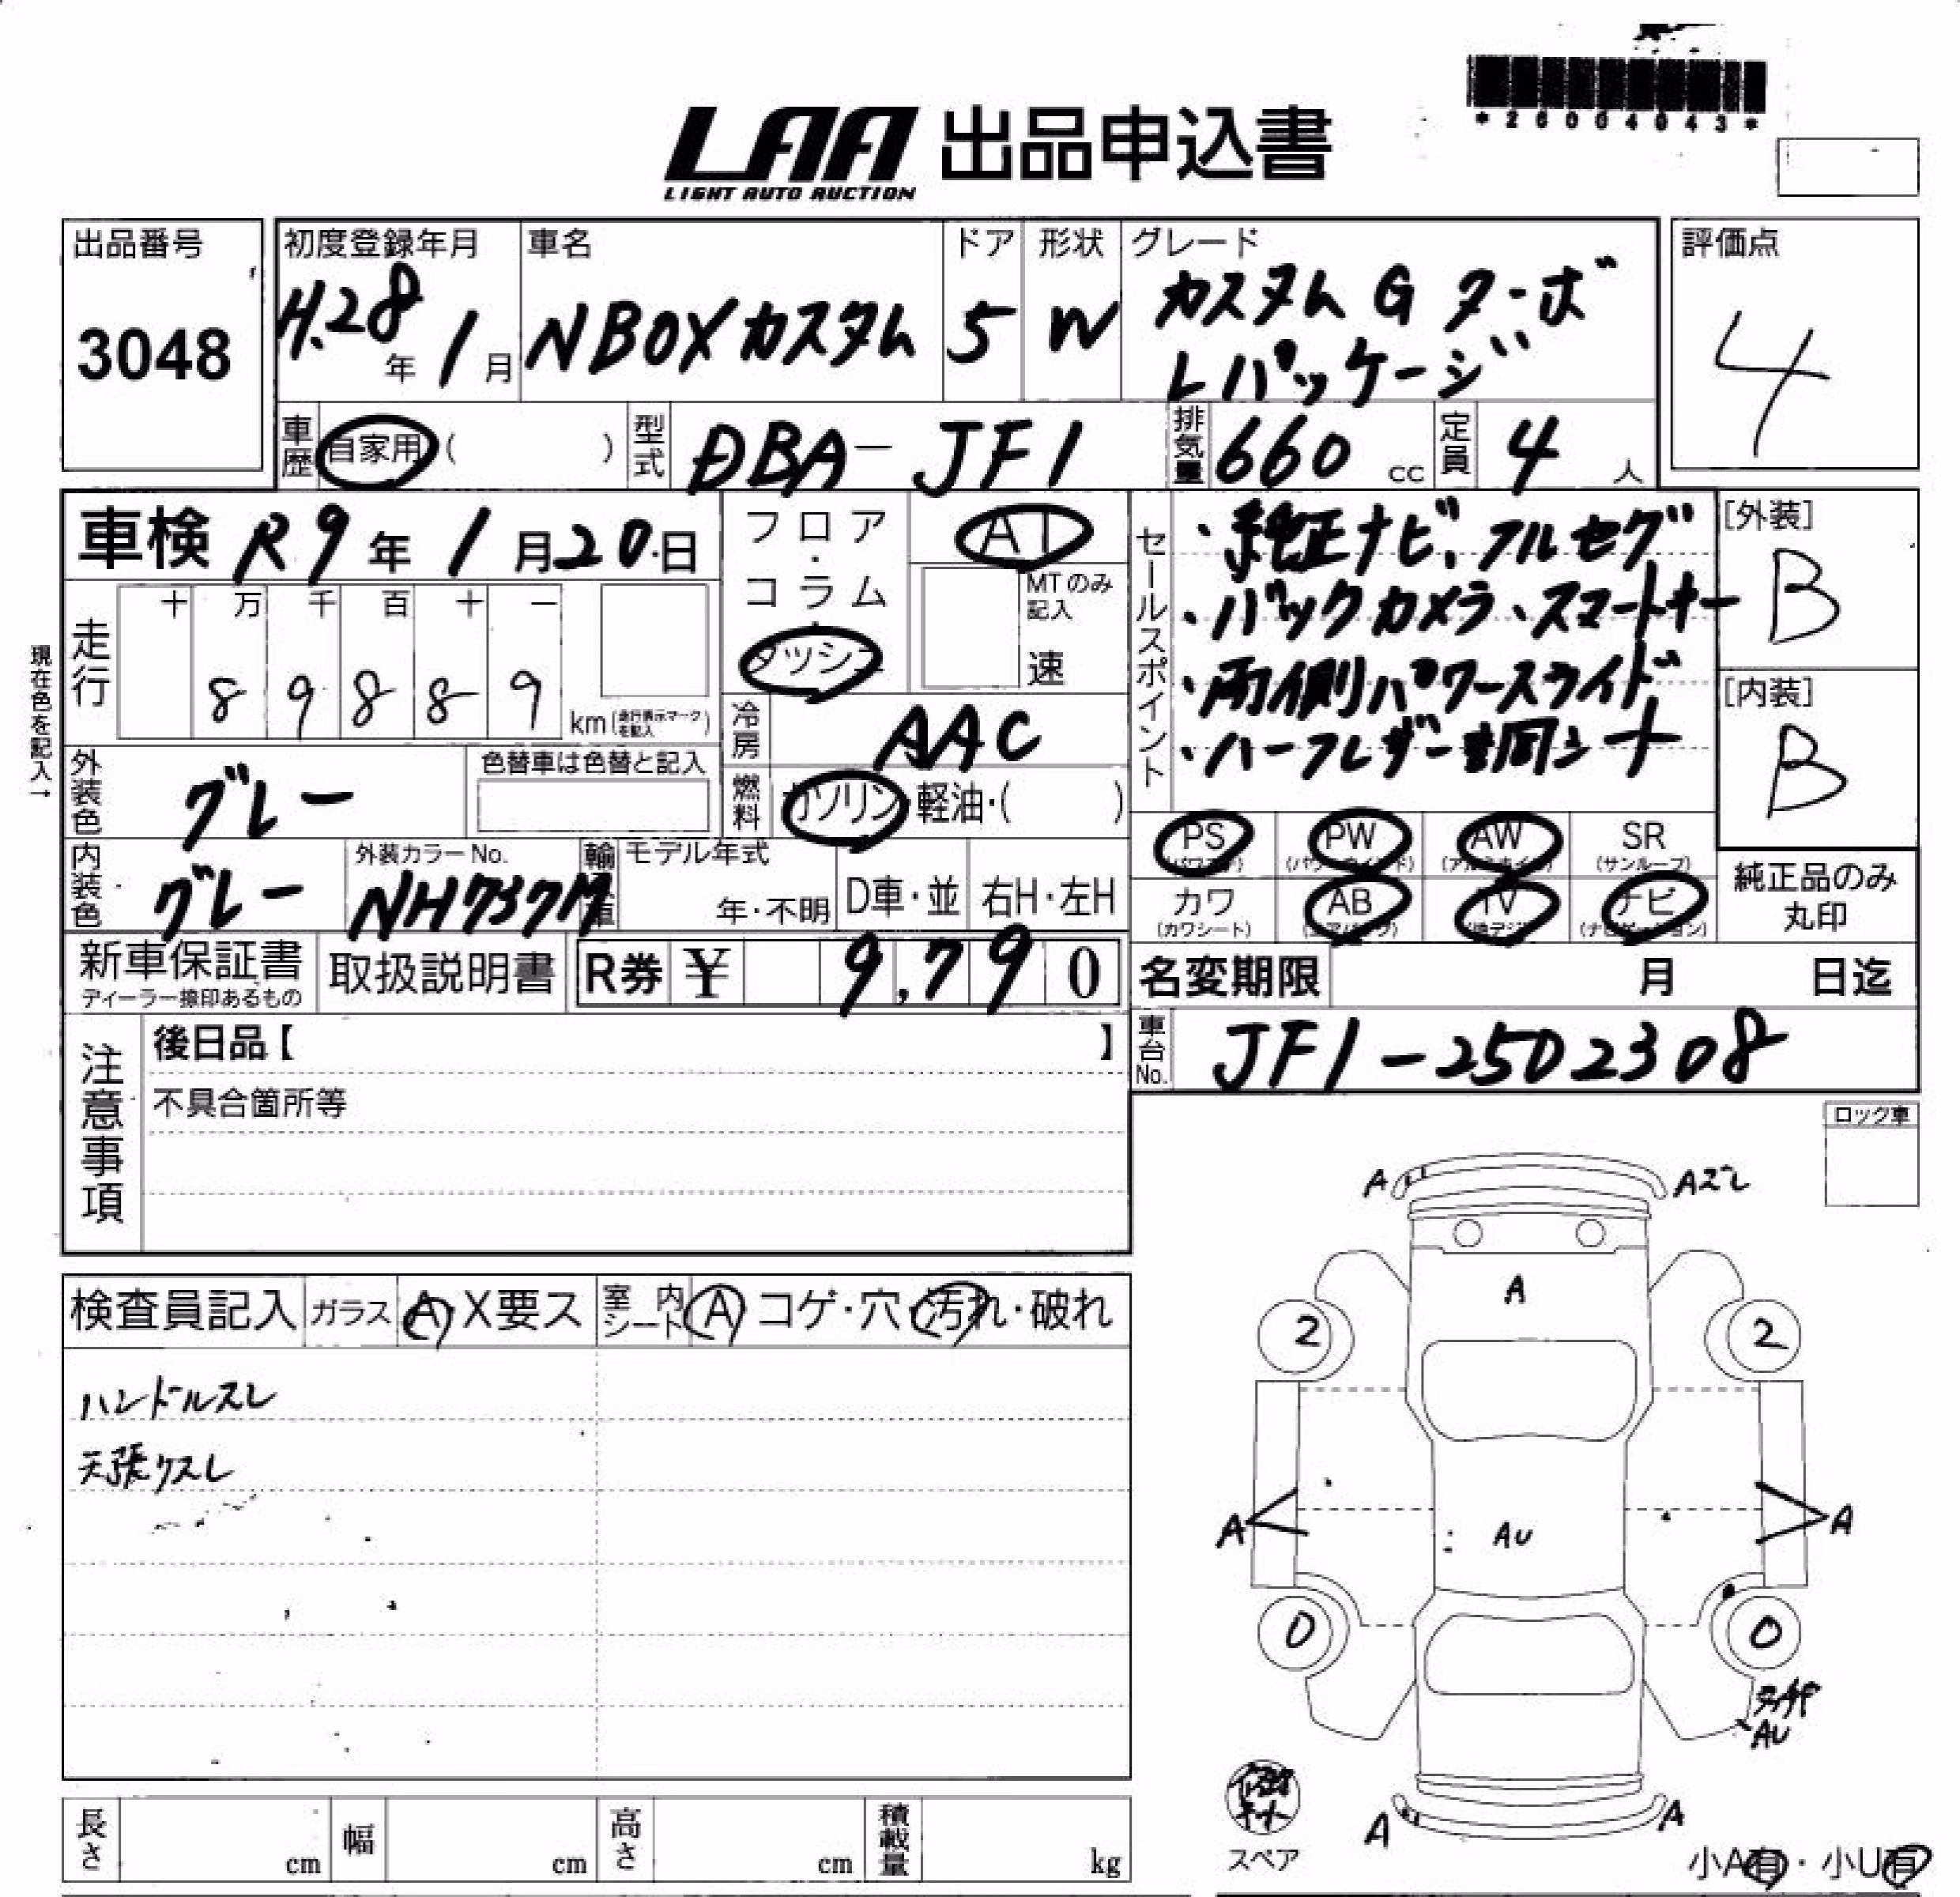 *26004043*
LAA 出品申込書
LIGHT AUTO AUCTION
出品番号
3048
初度登録年月
H.28年 1月
車名
NBOXカスタム
ドア
5
形状
W
グレード
カスタム G ターボ
Lパッケージ
評価点
4
車歴 自家用 ( )
型式 DBA-JF1
排気量 660 cc
定員 4 人
車検 R9年 1月20日
フロア・コラム
ダッシュ
AT
MTのみ記入
速
セールスポイント
・純正ナビ、フルセグ
・バックカメラ、スマートキー
・両側パワースライド
・ハーフレザー調シート
[外装]
B
[内装]
B
現在色を記入→
走行 十 万 千 百 十 一
8 9 8 8 9 km(走行表示マークを記入)
冷房 AAC
外装色 グレー
色替車は色替と記入
燃料 ガソリン・軽油・( )
内装色 グレー
外装カラーNo.
NH737M
輸車 モデル年式
年・不明
D車・並
右H・左H
PS (パワステ)
PW (パワーウインド)
AW (アルミホイル)
SR (サンルーフ)
カワ (カワシート)
AB (エアバック)
TV (地デジ)
ナビ (ナビゲーション)
純正品のみ
丸印
新車保証書
ディーラー捺印あるもの
取扱説明書
R券 ¥ 9,790
名変期限 月 日迄
車台No. JF1-2502308
注意事項
後日品【 】
不具合箇所等
ロック車
検査員記入
ガラス A・X要ス
室内シート A コゲ・穴・汚れ・破れ
ハンドルスレ
天張クスレ
A
Aズレ
A
2
2
A
AU
A
0
0
AU
A
A
スペア
小A有・小U有
長さ cm
幅 cm
高さ cm
積載量 kg